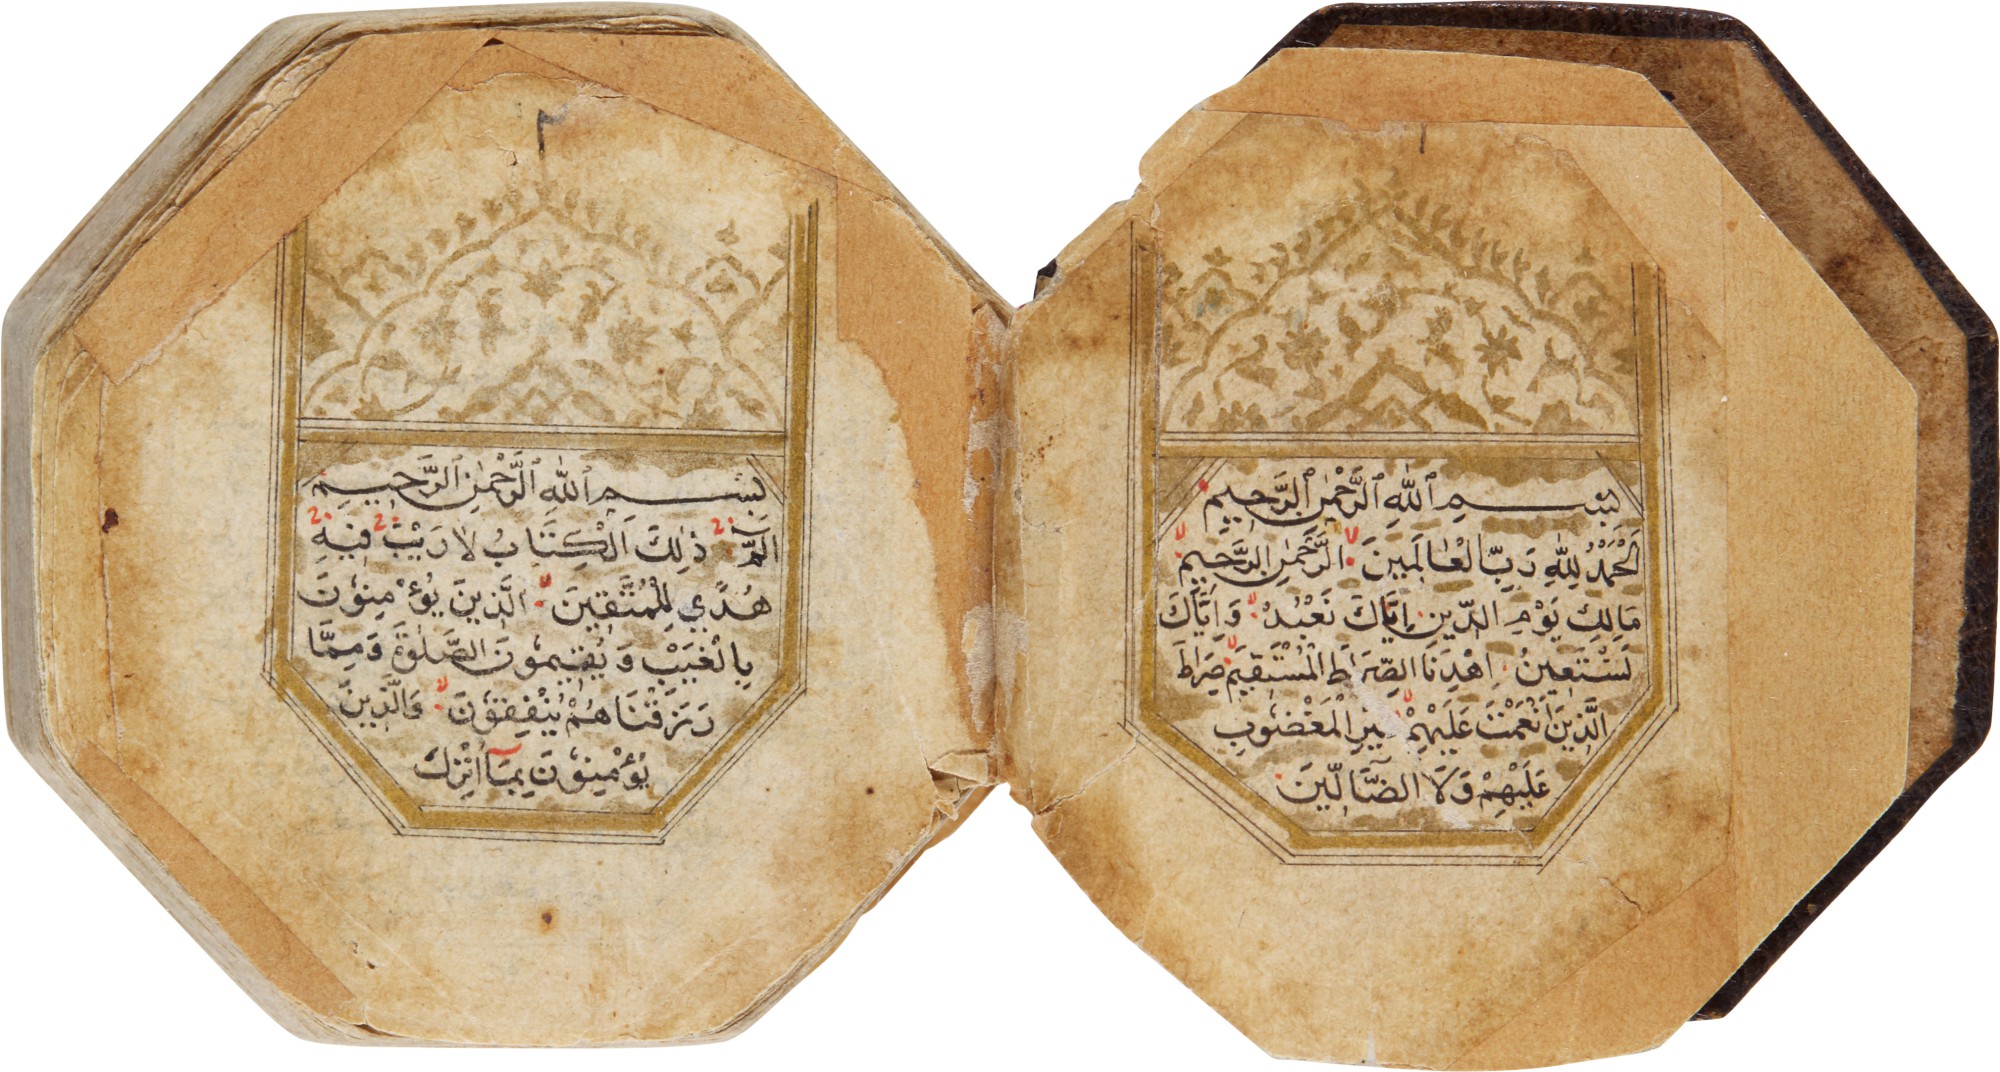 بِسْمِ ٱللّٰهِ ٱلرَّحْمٰنِ ٱلرَّحِيمِ
اَلْحَمْدُ لِلّٰهِ رَبِّ الْعَالَمِينَ الرَّحْمٰنِ الرَّحِيمِ
مَالِكِ يَوْمِ الدِّينِ اِيَّاكَ نَعْبُدُ وَاِيَّاكَ
نَسْتَعِينُ اِهْدِنَا الصِّرَاطَ الْمُسْتَقِيمَ صِرَاطَ
الَّذِينَ اَنْعَمْتَ عَلَيْهِمْ غَيْرِ الْمَغْضُوبِ
عَلَيْهِمْ وَلَا الضَّآلِّينَ
بِسْمِ ٱللّٰهِ ٱلرَّحْمٰنِ ٱلرَّحِيمِ
الٓمّٓ ذٰلِكَ الْكِتَابُ لَا رَيْبَ فِيهِ
هُدًي لِلْمُتَّقِينَ الَّذِينَ يُؤْمِنُونَ
بِالْغَيْبِ وَيُقِيمُونَ الصَّلٰوةَ وَمِمَّا
رَزَقْنَاهُمْ يُنْفِقُونَ وَالَّذِينَ
يُؤْمِنُونَ بِمَآ اُنْزِلَ